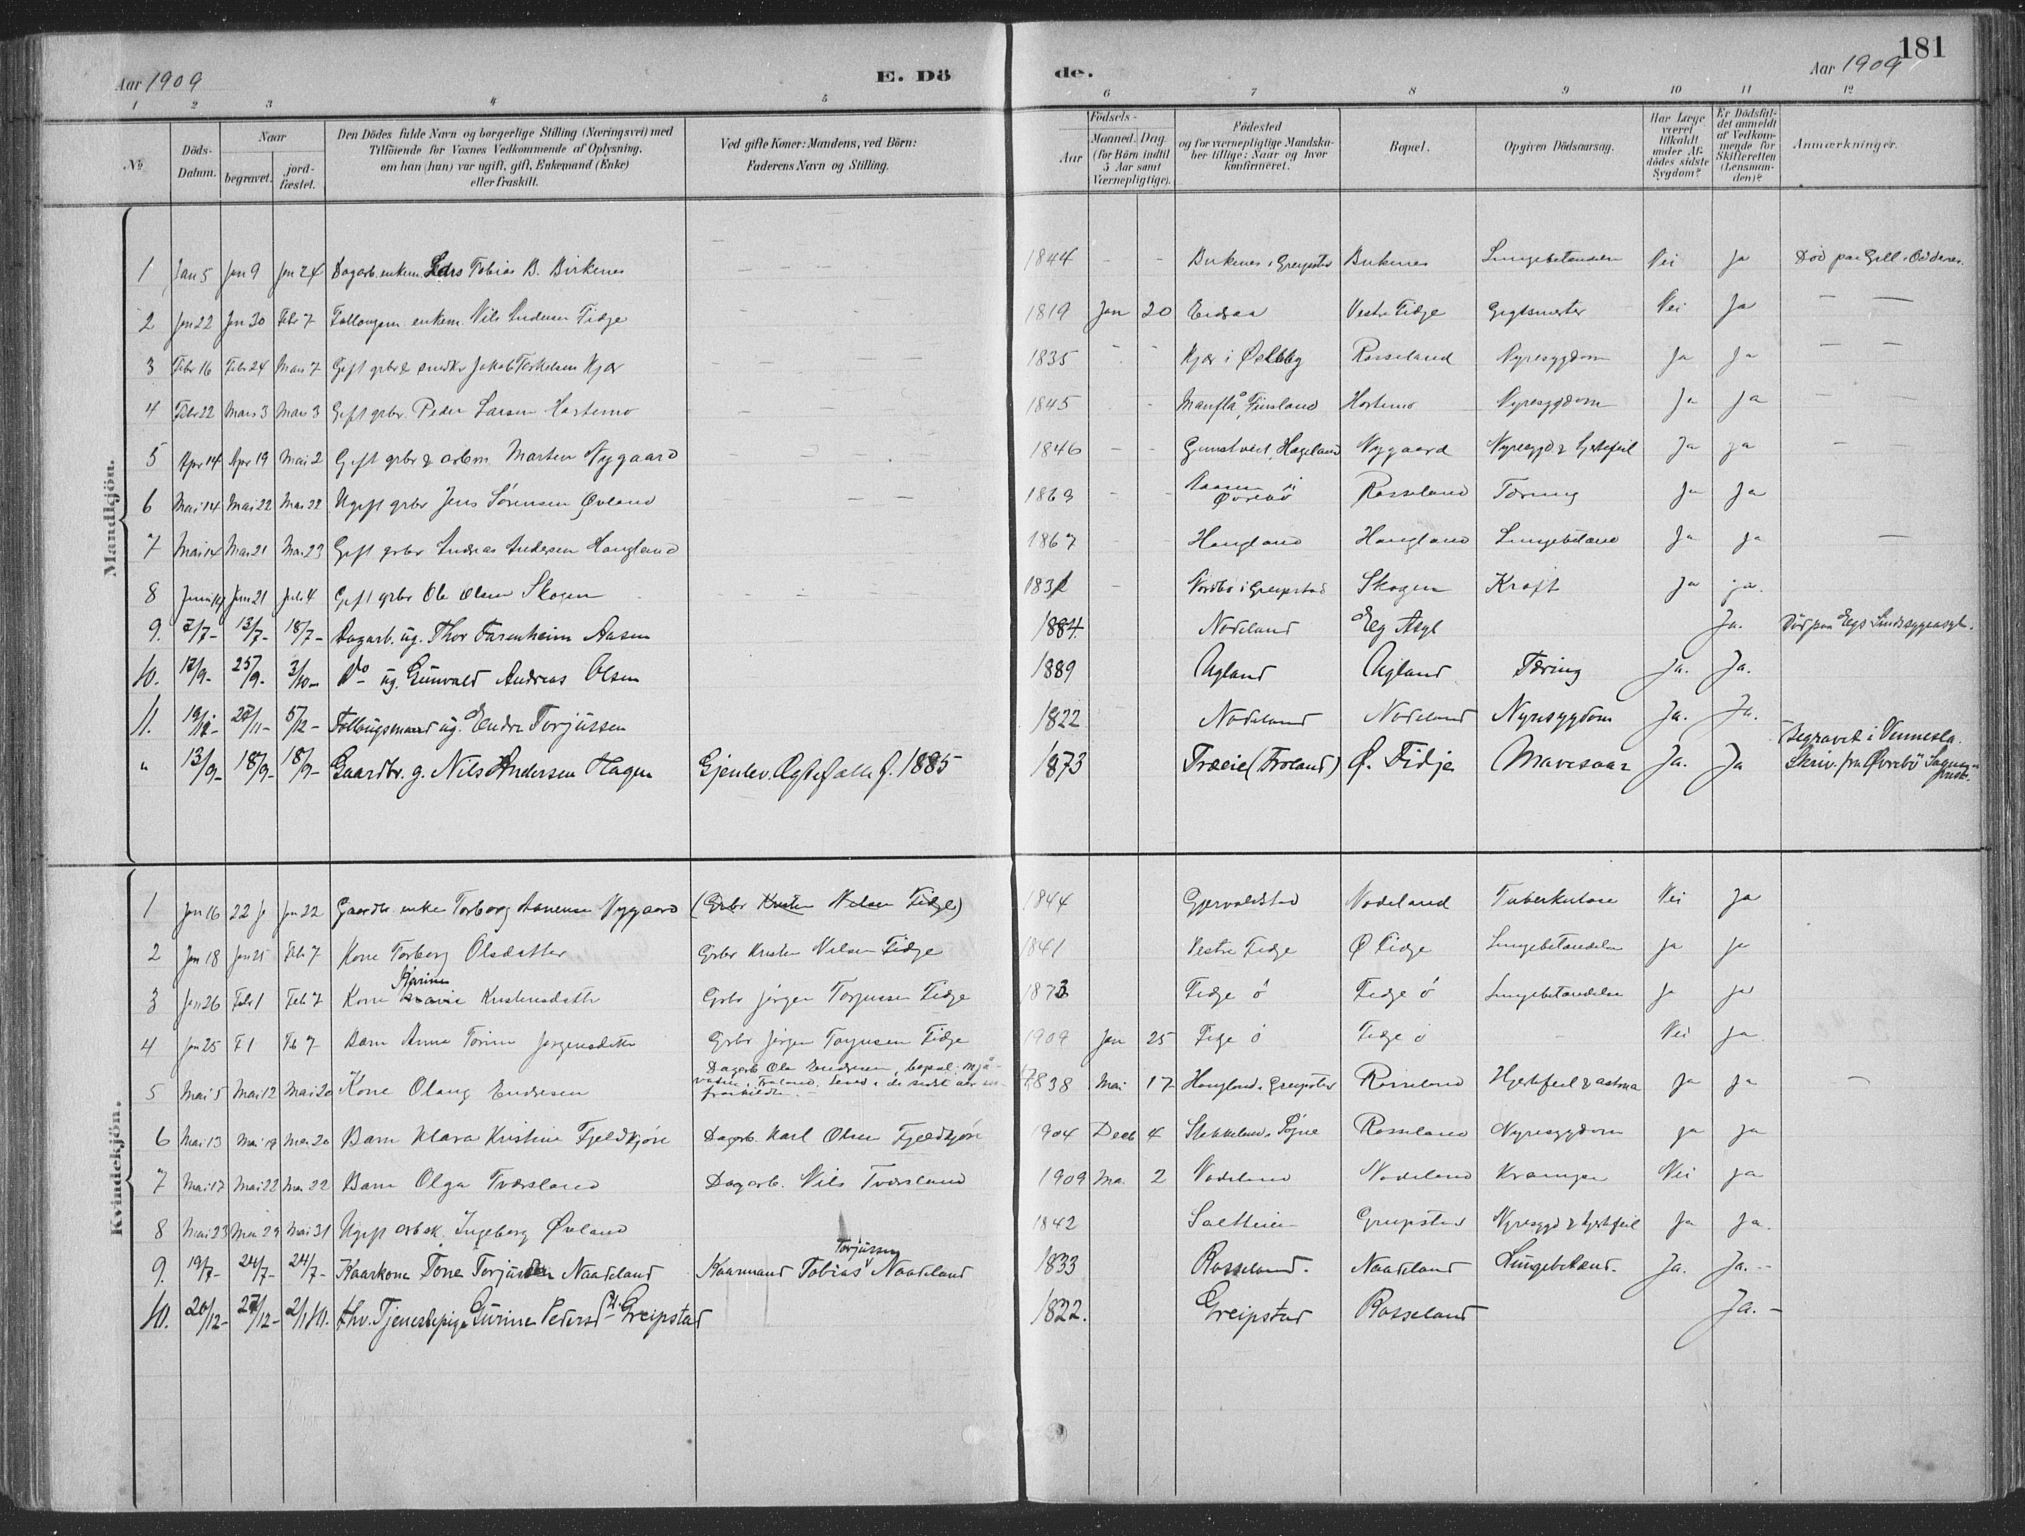 181
Aar 1909
E. Dö
de.
Aar 1909
1 2 3 4 5 6 7 8 9 10 11 12
№
Döds-
Datum.
Naar
begravet.
jord-
fæstet.
Den Dödes fulde Navn og borgerlige Stilling (Næringsvei) med
Tilföiende for Voxnes Vedkommende af Oplysning,
om han (hun) var ugift, gift, Enkemand (Enke)
eller fraskilt.
Ved gifte Koner: Mandens, ved Börn:
Faderens Navn og Stilling.
Födsels-
Aar
Maaned. Dag.
(for Börn indtil
5 Aar samt
Værnepligtige).
Födested
og for værnepligtige Mandska-
ber tillige: Naar og hvor
konfirmeret.
Bopæl.
Opgiven Dödsaarsag.
Har Læge
været
tilkaldt
under Af-
dödes sidste
Sygdom?
Er Dödsfal-
det anmeldt
af Vedkom-
mende for
Skifteretten
(Lensman-
den)?
Anmærkninger.
Mandkjön.
1 Jan 5 Jan 9 Jan 24 Dagarb. enkem Lars Tobias B. Birkenes — — — 1844 - - Birkenes i Greipstad Birkenes Lungebetændelse Nei Ja Död paa Gill i Oddernes
2 Jan 22 Jan 30 Febr 7 enkem. Nils Andersen Fidje — — — 1819 Jan 20 Eidsaa Vestre Fidje Gigtsmerter Nei Ja — —
3 Febr 16 Febr 24 Mars 7 Gift grbr & snedker Jakob Torkelsen Kjær — — — 1835 - - Kjær i Øslebg Rosseland Nyresygdom Ja Ja — —
4 Febr 22 Mars 3 Mars 3 Gift grbr. Peder Larsen Hortemo — — — 1845 - Manflå, Finsland Hortemo Nyresygdom Ja Ja —
5 Apr 14 Apr 19 Mai 2 Gift grbr & arbm. Morten Nygaard — — — 1846 - - Gunstveit, Hægeland Nygaard Nyresygd & hjertefeil Ja ja —
6 Mai 14 Mai 22 Mai 22 Ugift grbr Jens Sörensen Øvland — — 1863 - - Aasen i Øvrebö Rosseland Tæring Ja Ja
7 Mai 14 Mai 21 Mai 23 Gift grbr Andreas Andersen Haugland 1867 - - Haugland Haugland Lungebetænd Ja ja —
8 Juni 14 Juni 21 Juli 4 Gift grbr Ole Olsen Skogen 1831 - Nordbö i Greipstad Skogen Kræft ja ja.
9. 7/7- 13/7- 18/7- Dagarb. ug. Thor Farenheim Aasen 1884. Nodeland Eg Asyl Ja. Död paa Egs Sindssygeasyl.
10. 17/9- 25/9- 3/10- Do ug. Gunvald Andreas Olsen 1889 Ugland Ugland Tæring Ja. Ja.
11. 27/11- 5/12- ug. Endre Torjussen 1822 Nodeland Nodeland Nyresygdom Ja. Ja.
" 13/9- 18/9- 18/9- Gaardbr. g. Nils Andersen Hagen Gjenlev. Ægtefælle f. 1885 1873 Træeie (Froland) Ø. Fidje Mavesaar Ja. Ja Begravet i Vennesla. Skriv. fra Øvrebö Sogneprest.
Kvindekjön.
1 Jan 16 22 J Jan 22 Gaardbr. enke Torborg Aanensen Nygaard (Grbr Kristen Nilsen Fidje) 1844 Gjervoldstad Nodeland Tuberkulose Nei Ja
2 Jan 18 Jan 25 Feb 7 Kone Torborg Olsdatter Grbr Kristen Nilsen Fidje 1841 Vestre Fidje Ø Fidje Lungebetændelse ja ja
3 Jan 26 Feb 1 Feb 7 Kone Kristensdatter Grbr Jörgen Torjussen Fidje 1873 Fidje ö Fidje ö Lungebetændelse ja ja
4 Jan 25 F 1 Fb 7 Barn Anna Jorgensdatter Grbr Jörgen Torjussen Fidje 1909 Jan 25 Fidje ö Fidje ö - Nei Ja
5 Mai 5 Mai 12 Mai 20 Kone Olaug Endresen Dagarb Ole Endresen, bopæl: 1838 Mai 17 Haugland i Greipstad Rosseland Hjertefeil & astma ja ja —
6 Mai 13 Mai 19 Mai 20 Barn Klara Kristine Fjeldkjön Dagarb. Karl Olsen Fjeldkjön 1904 Decb 4 Stokkeland i Søgne Rosseland Nyresygdom ja ja
7 Mai 17 Mai 22 Mai 22 Barn Olga Tversland Dagarb. Nils Tversland 1909 Mai 2 Nodeland Nodeland Krampe Nei ja
8 Mai 23 Mai 29 Mai 31 Ugift arbsk. Ingeborg Øvland 1842 Greipstad Nyresygd & hjertefeil ja ja.
9. 19/7- 24/7- 24/7- Kaarkone Tone Torjusdtr Naadeland Kaarmand Tobias Torjussen Naadeland 1833 Rosseland. Naadeland Lungebetænd. Ja. Ja.-
10. 20/12- 27/12- 2/1 10. fhv. Tjenestepige Gurine Pedersd. Greipstad 1822. Greipstad Rosseland Ja.-